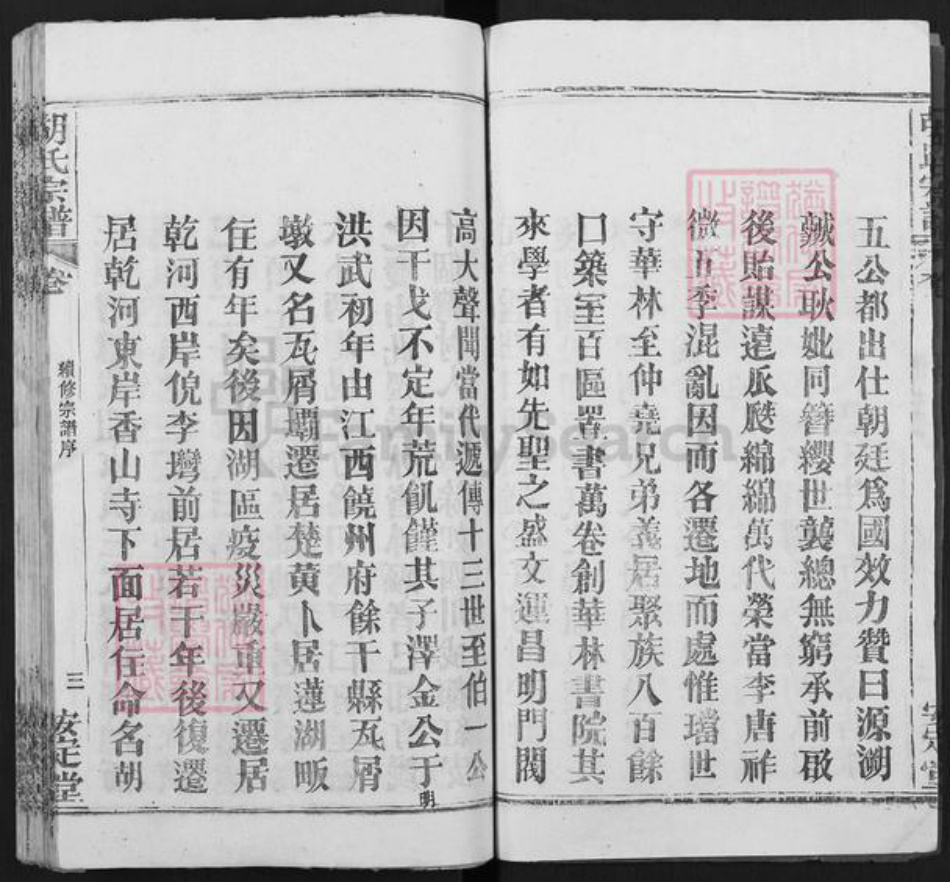 五公都出仕朝廷爲國效力贊曰源溯
虢公耿妣同簪纓世襲總無窮承前啟
後貽謀遠瓜瓞綿綿萬代榮當李唐祚
微五季混亂因而各遷地而處惟璫世
守華林至仲堯兄弟義居聚族八百餘
口築室百區畧書萬卷創華林書院其
來學者有如先聖之盛文運昌明門閥
高大聲聞當代遞傳十三世至伯一公
因干戈不定年荒飢饉其子澤金公于明
洪武初年由江西饒州府餘干縣瓦屑
墩又名瓦屑壩遷居楚黃卜居蓮湖畈
住有年矣後因湖區疫災嚴重又遷居
乾河西岸倪李壪前居若干年後復遷
居乾河東岸香山寺下面居住命名胡
胡氏宗譜
卷
續修宗譜序
三
安定堂
FamilySearch